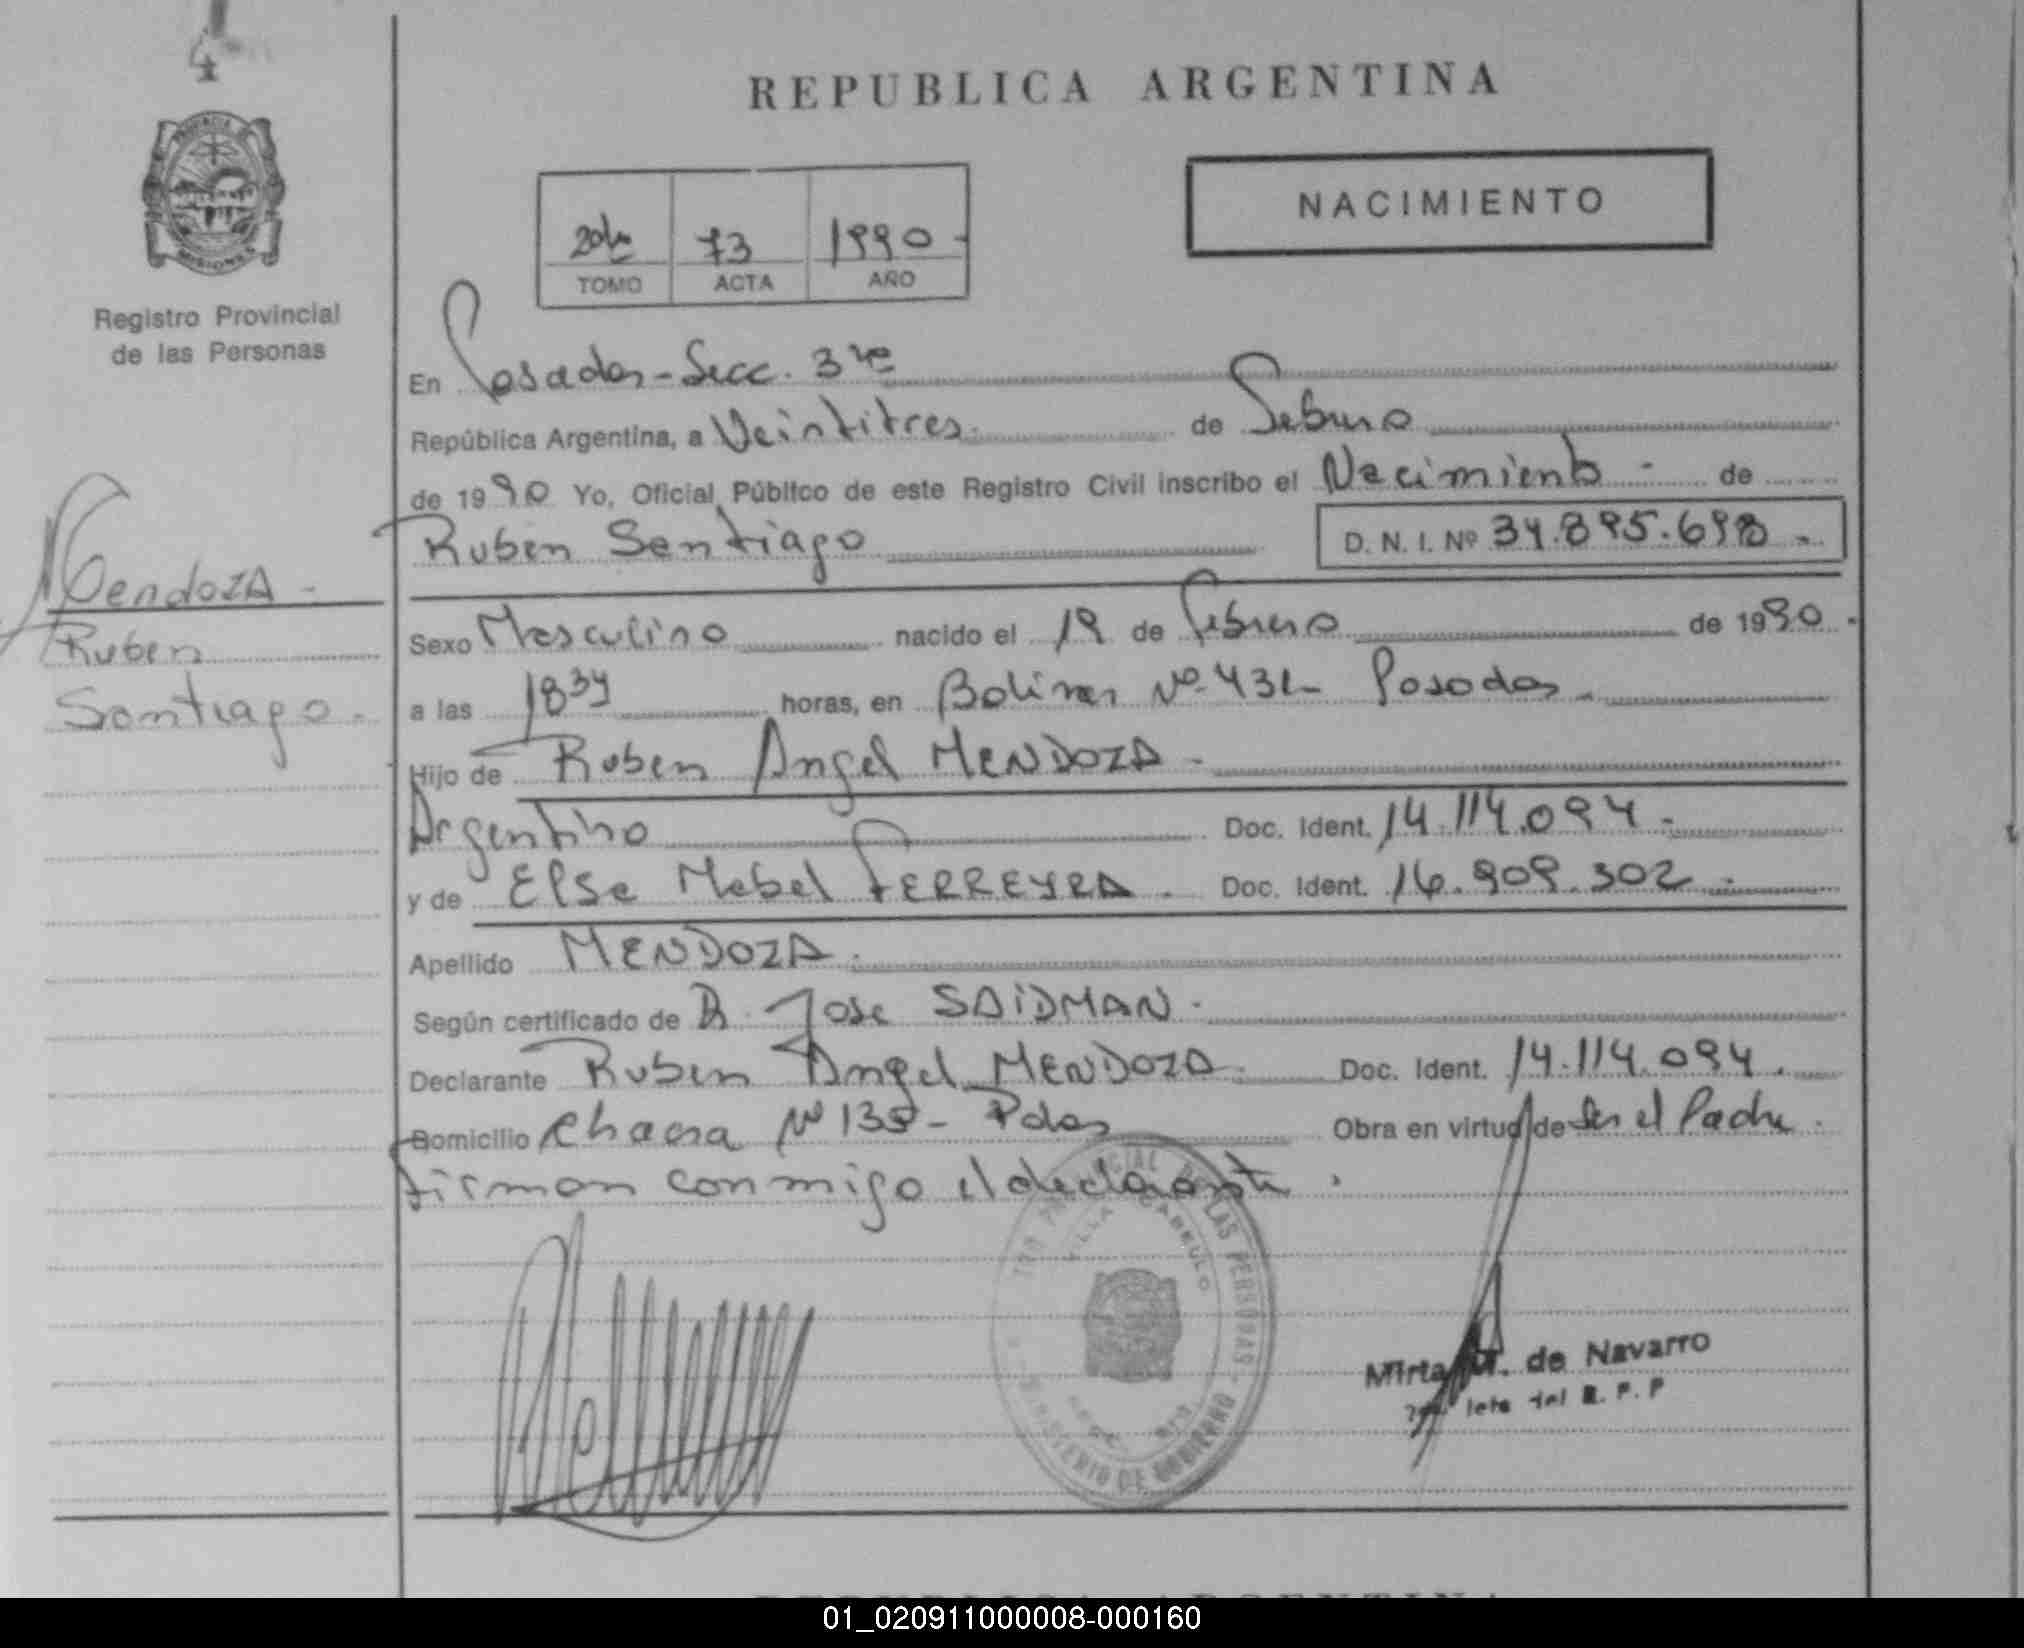 4
REPUBLICA ARGENTINA
NACIMIENTO
73 1990 -
TOMO ACTA AÑO
PROVINCIA DE
MISIONES
Registro Provincial
de las Personas
En Posadas - Secc. 3ra
República Argentina, a Veintitres. de Febrero
de 1990 Yo, Oficial Público de este Registro Civil inscribo el Nacimiento - de
Ruben Santiago D. N. I. Nº 34.895.698 -
Mendoza -
Ruben
Santiago.
Sexo Masculino nacido el 19 de Febrero de 1990 -
a las 18 34 horas, en Bolivar Nº 431 - Posadas -
Hijo de Ruben Angel MENDOZA -
Argentino Doc. Ident. 14.114.094 -
y de Elsa Mabel FERREYRA. Doc. Ident. 16.909.302 -
Apellido MENDOZA.
Según certificado de Dr. Jose SAIDMAN.
Declarante Ruben Angel MENDOZA. Doc. Ident. 14.114.094.
Domicilio Chacra Nº 135 - Pdas Obra en virtud de ser el Padre.
firman conmigo el declarante.
PROVINCIAL DE LAS PERSONAS - MINISTERIO DE GOBIERNO
VILLA CABELLO
Mirta de Navarro
del R. P. P
01_020911000008-000160